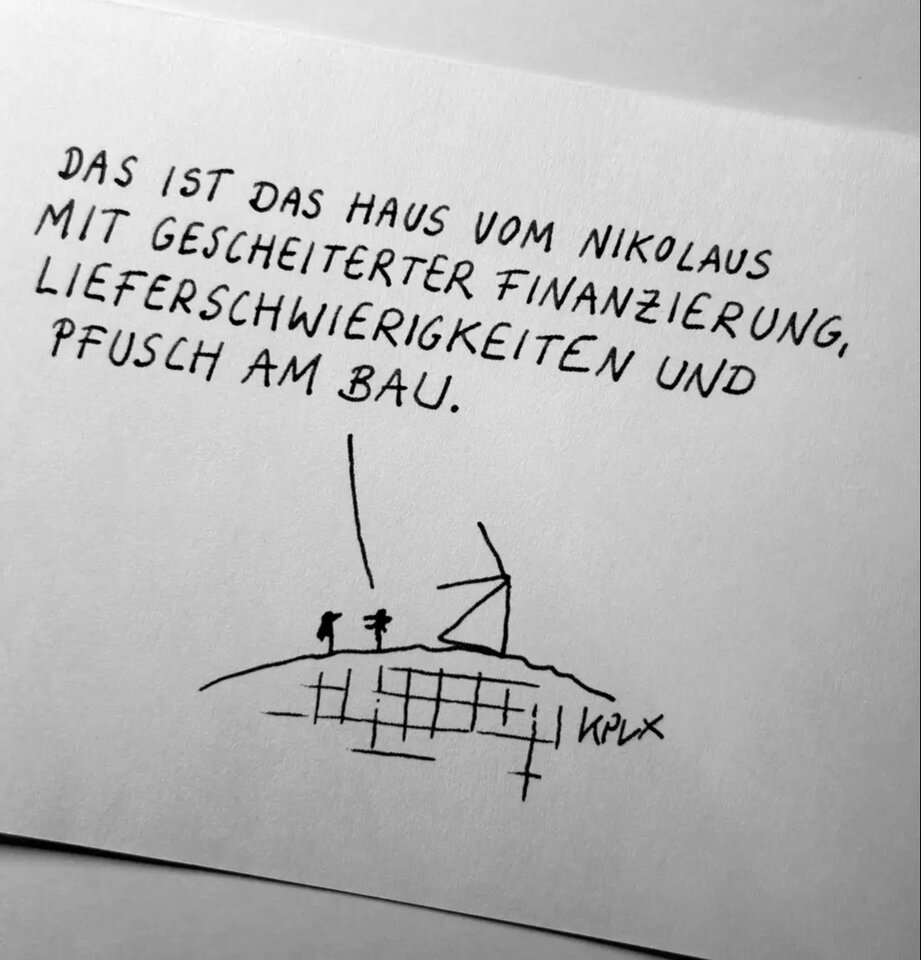 DAS IST DAS HAUS VOM NIKOLAUS
MIT GESCHEITERTER FINANZIERUNG,
LIEFERSCHWIERIGKEITEN UND
PFUSCH AM BAU.
KPLX